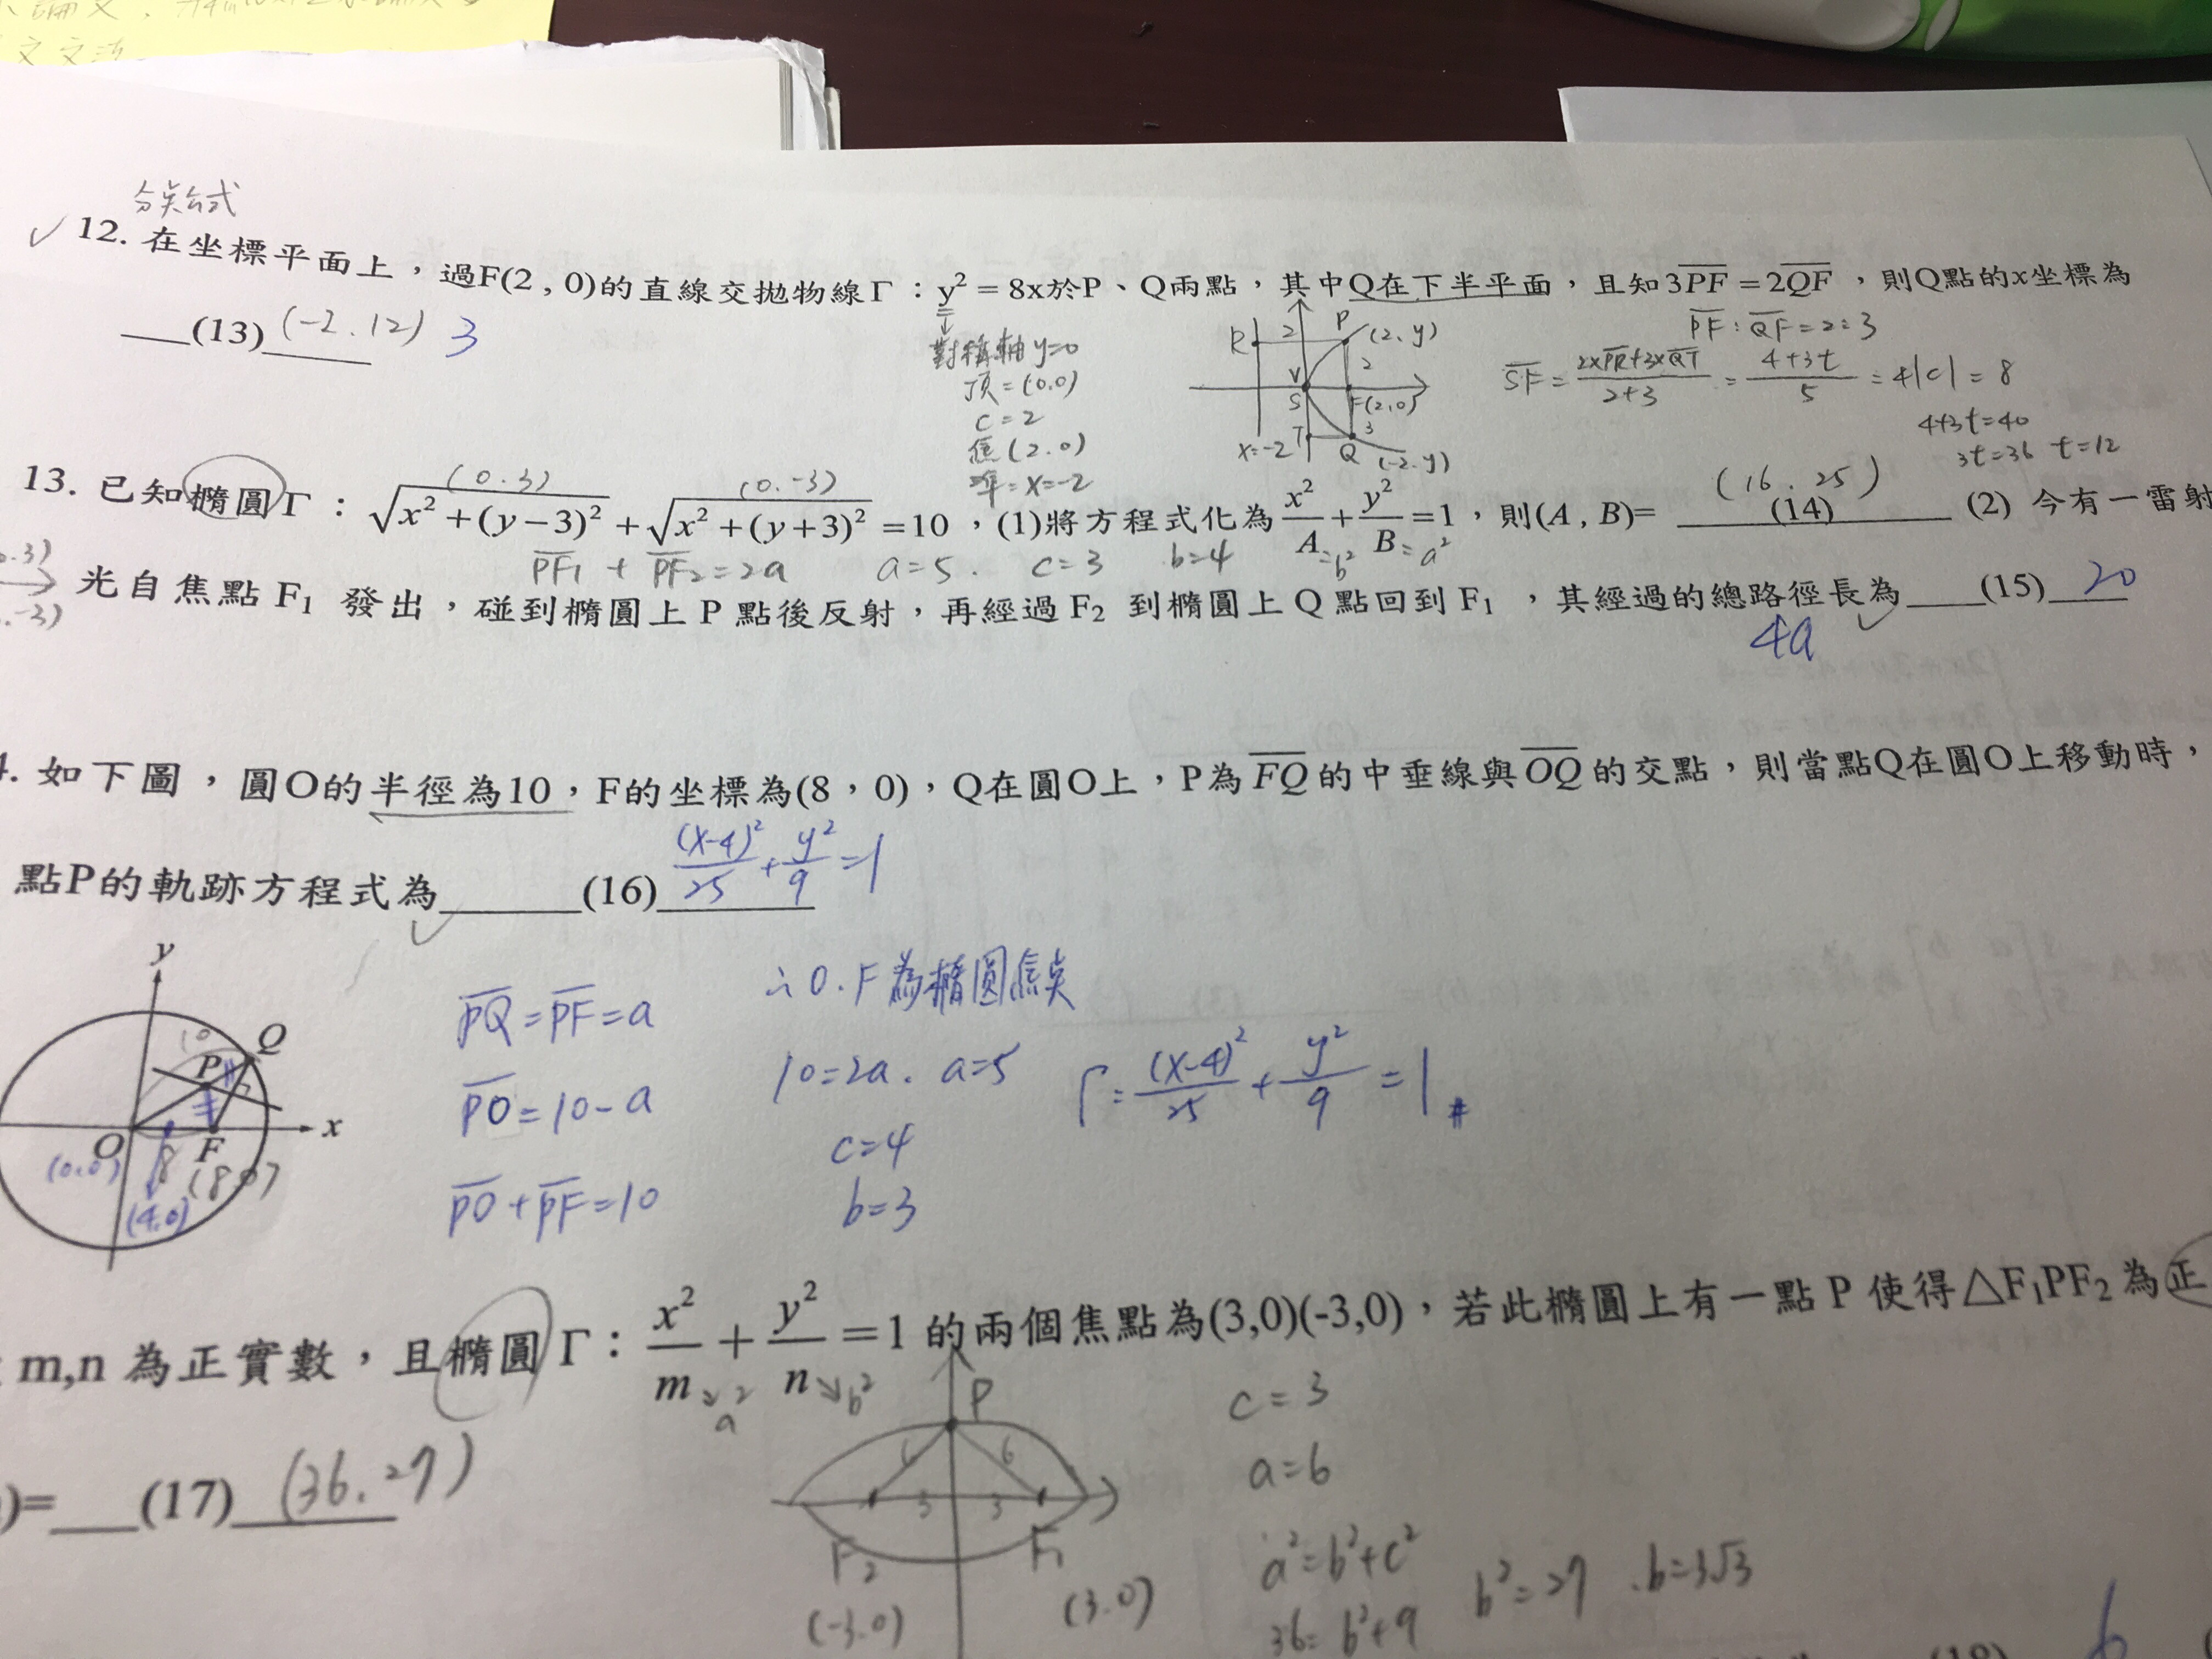 分点公式
12. 在坐標平面上，過F(2 , 0)的直線交拋物線Γ：y² = 8x於P、Q兩點，其中Q在下半平面，且知3PF = 2QF，則Q點的x坐標為
(13) (-2.12) 3
對稱軸 y=0
頂=(0.0)
c=2
焦(2.0)
準=x=-2
R 2 P (2,y)
V 2
S F(2,0)
T 3
x=-2 Q (-2.y)
PF:QF=2:3
SF = (2×PR+3×QT)/(2+3) = (4+3t)/5 = 4|c| = 8
4+3t=40
3t=36 t=12
(0.3) (0.-3) (16.25)
13. 已知橢圓Γ：√(x²+(y−3)²)+√(x²+(y+3)²)=10，(1)將方程式化為x²/A+y²/B=1，則(A , B)= (14) (2) 今有一雷射
PF₁ + PF₂=2a a=5. c=3 b=4 =b² =a²
.3)
.-3)
光自焦點 F₁ 發出，碰到橢圓上 P 點後反射，再經過 F₂ 到橢圓上 Q 點回到 F₁ ，其經過的總路徑長為 (15) 20
4a
4. 如下圖，圓O的半徑為10，F的坐標為(8，0)，Q在圓O上，P為FQ的中垂線與OQ的交點，則當點Q在圓O上移動時，
點P的軌跡方程式為 (16) (x-4)²/25+y²/9=1
y
10 Q
P
O F x
(0.0) 8 (8 0)
(4.0)
PQ=PF=a
PO=10-a
PO+PF=10
∴O.F為橢圓焦点
10=2a. a=5
c=4
b=3
Γ=(x-4)²/25+y²/9=1#
m,n 為正實數，且橢圓Γ：x²/m+y²/n=1 的兩個焦點為(3,0)(-3,0)，若此橢圓上有一點 P 使得△F₁PF₂ 為正
a² b²
)= (17) (36.27)
P
6 6
3 3
F₂ F₁
(-3.0) (3.0)
c=3
a=6
a²=b²+c²
36=b²+9
b²=27 .b=3√3
(18) 6